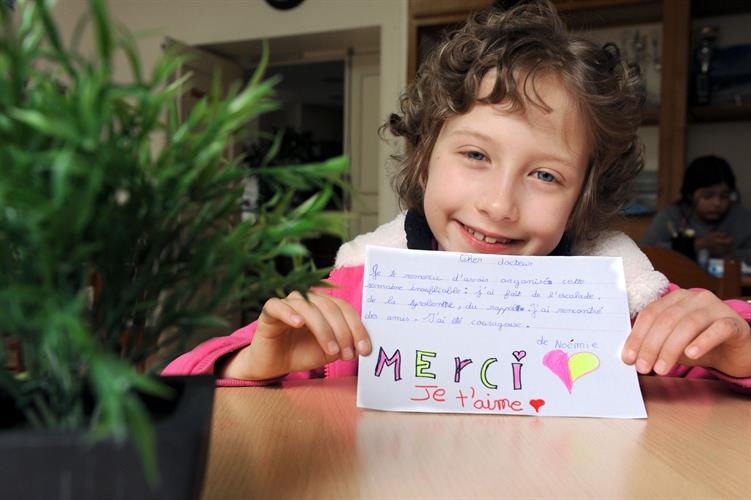 Cher docteur
Je te remercie d'avoir organisé cette
semaine inoubliable : j'ai fait de l'escalade,
de la tyrolienne, du rappel, j'ai rencontré
des amis. J'ai été courageuse.
de Noémie
MERCi
Je t'aime